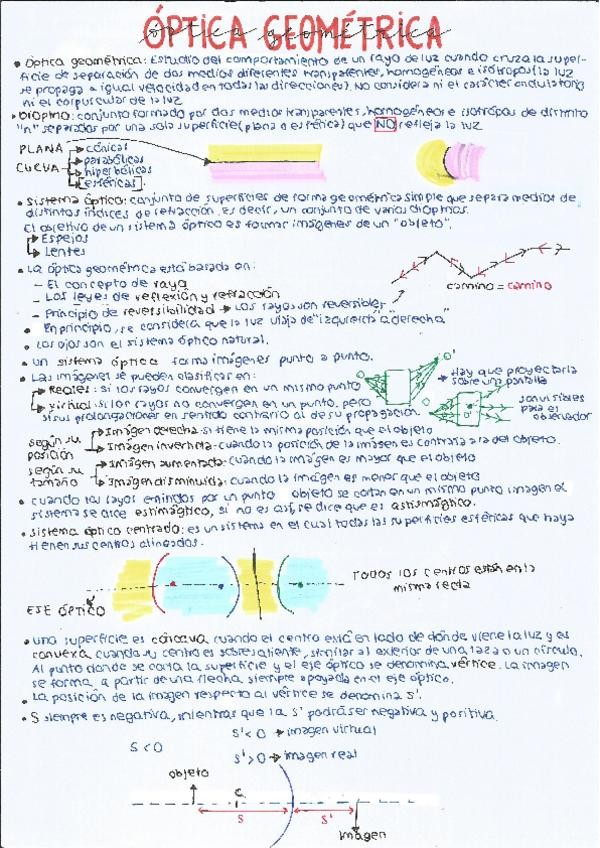 ÓPTICA GEOMÉTRICA
• Óptica geométrica: Estudio del comportamiento de un rayo de luz cuando cruza la super-
ficie de separación de dos medios diferentes transparentes, homogéneos e isótropos (la luz
se propaga a igual velocidad en todas las direcciones). No considera ni el carácter ondulatorio
ni el corpuscular de la luz.
• Dioptrio: conjunto formado por dos medios transparentes, homogéneos e isótropos de distinto
"n" separados por una sola superficie (plana o esférica) que NO refleja la luz.
PLANA
CURVA
cónicas
parabólicas
hiperbólicas
esféricas
• Sistema óptico: conjunto de superficies de forma geométrica simple que separa medios de
distintos índices de refracción, es decir, un conjunto de varios dioptrios.
El objetivo de un sistema óptico es formar imágenes de un "objeto".
Espejos
Lentes
• La óptica geométrica está basada en:
- El concepto de rayo
- Las leyes de reflexión y refracción
- Principio de reversibilidad → Los rayos son reversibles
camino = camino
• En principio, se considera que la luz viaja de "izquierda" a "derecha"
• Los ojos son el sistema óptico natural.
• Un sistema óptico forma imágenes punto a punto.
• Las imágenes se pueden clasificar en:
Reales: si los rayos convergen en un mismo punto
Hay que proyectarla
sobre una pantalla
Virtual: si los rayos no convergen en un punto, pero
si sus prolongaciones en sentido contrario al de su propagación.
son visibles
para es
observador
según su
posición
Imagen derecha: si tiene la misma posición que el objeto
Imagen invertida: cuando la posición de la imagen es contraria a la del objeto.
según su
tamaño
Imagen aumentada: cuando la imagen es mayor que el objeto
Imagen disminuida: cuando la imagen es menor que el objeto
• Cuando los rayos emitidos por un punto objeto se cortan en un mismo punto imagen el
sistema se dice estimágtico, si no es así, se dice que es astismágtico.
• Sistema óptico centrado: es un sistema en el cual todas las superficies esféricas que haya
tienen sus centros alineados.
EJE ÓPTICO
TODOS los centros están en la
misma recta
• Una superficie es cóncava cuando el centro está en lado de dónde viene la luz y es
convexa cuando su centro es sobresaliente, similar al exterior de una taza o un círculo.
Al punto donde se corta la superficie y el eje óptico se denomina vértice. La imagen
se forma a partir de una flecha siempre apoyada en el eje óptico.
• La posición de la imagen respecto al vértice se denomina s'.
• S siempre es negativa, mientras que la s' podrá ser negativa y positiva.
S < 0
s' < 0 → imagen virtual
s' > 0 → imagen real
objeto
C
S
S'
imagen